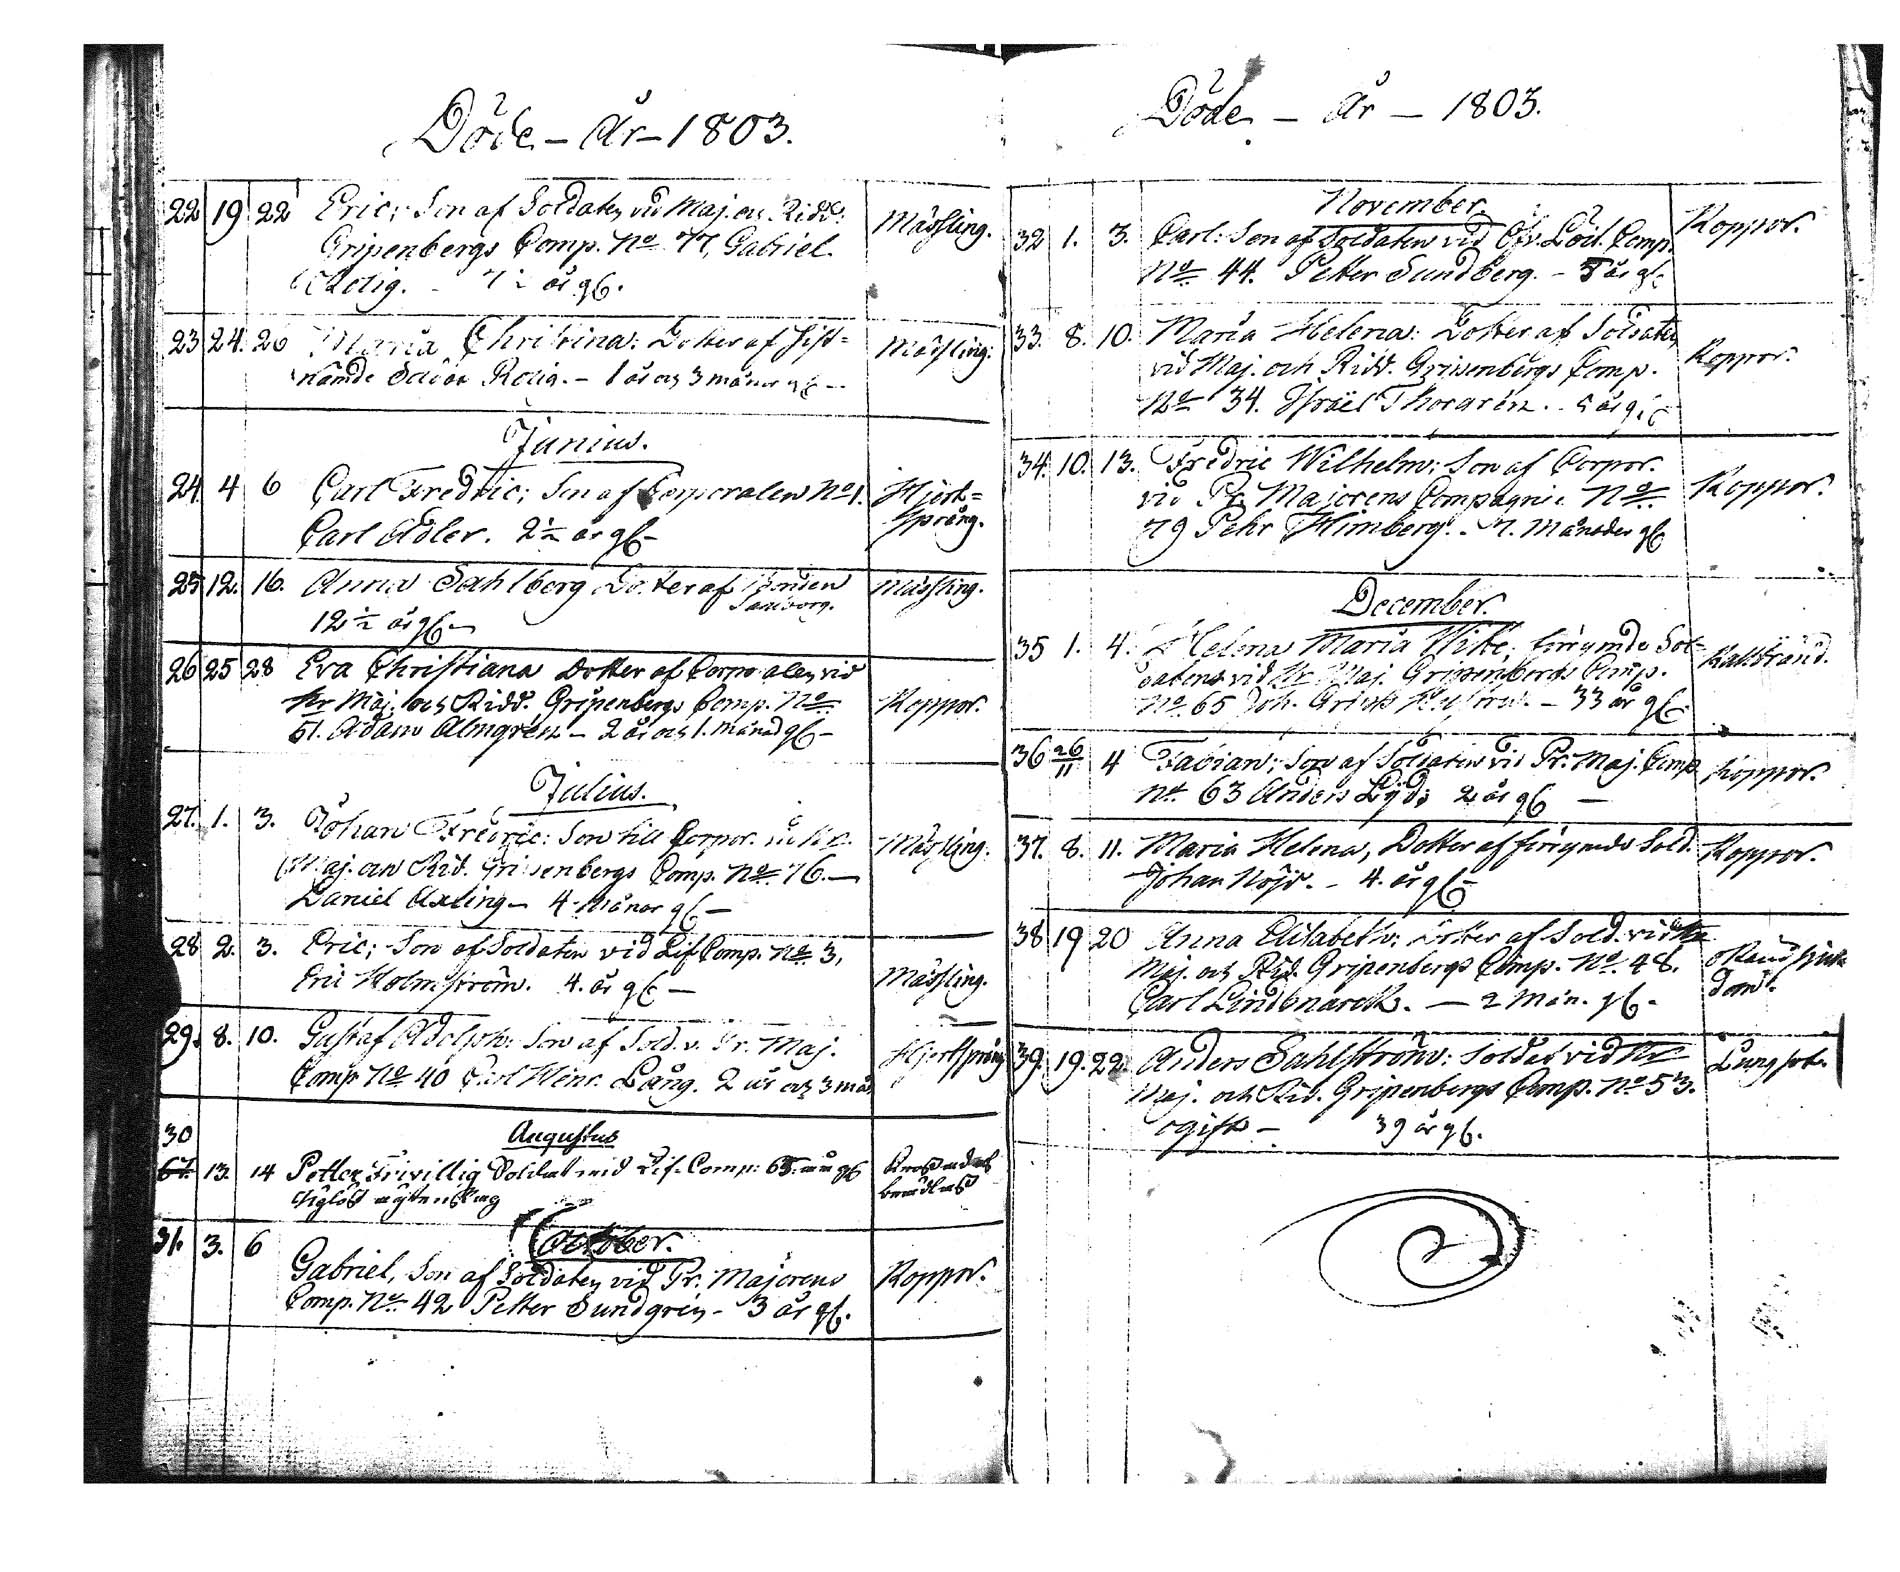 Döde – År – 1803.
22 19 22 Eric; Son af Soldaten vid Maj. och Ridd. Mässling.
Gripenbergs Comp. No 77, Gabriel
Rolig. 7 1/2 år gl.
23 24. 26 Maria Christina: Dotter af sist= Mässling.
nämde Rolig. – 1 år och 3 månar gl –
Junius.
24 4 6 Carl Fredric; Son af Corporalen No 1. Hjert=
Carl Adler. 2 1/2 år gl – språng.
25 12. 16. Anna Sahlberg Dotter af Mässling.
12 1/2 år gl –
26 25 28 Eva Christiana Dotter af Corporalen vid
Hr Maj. och Ridd. Gripenbergs Comp. No Koppor.
51. Adam Almgrén – 2 år och 1. månad gl –
Julius.
27. 1. 3. Johan Fredric: Son till Corpor. Mässling.
Maj. och Rid. Gripenbergs Comp. No 76. –
Daniel Axling – 4 Månar gl –
28 2. 3. Eric; Son af Soldaten vid Lif Comp. No 3,
Eric Holmström. 4. år gl – Mässling.
29. 8. 10. Gustaf Adolph: Son af Sold. v. Pr. Maj. Hjertsprång
Comp. No 40 Carl Henr. Lång. 2 år och 3 mån
30 Augustus
67. 13. 14 Petter Frivillig Soldat vid Lif-Comp: 65. gl
October.
31. 3. 6 Gabriel, Son af Soldaten vid Pr. Majorens Koppor.
Comp. No 42 Petter Sundgrén – 3 år gl.
Döde – År – 1803.
November. Koppor.
32 1. 3. Carl: Son af Soldaten vid Öfv. Löit. Comp.
No 44. Petter Sundberg. – 5 år gl.
33. 8. 10. Maria Helena: Dotter af Soldaten
vid Maj. och Ridd. Gripenbergs Comp. Koppor.
No 34. Israël Thorgrén. 5 år gl
34. 10. 13. Fredric Wilhelm: Son af Corpor.
vid Pr. Majorens Compagnie No Koppor.
79 Pehr Himberg. – 7. Månader gl
December.
35 1. 4. Helena Maria Wike; Sol= Kallbrand.
datens vid Hr Maj. Gripenbergs Comp.
No 65 Joh. – 33 år gl.
36 26/11 4 Fabian; Son af Soldaten vid Pr. Maj. Comp Koppor.
No 63 Anders Lyd: 2 år gl –
37. 8. 11. Maria Helena, Dotter af Sold. Koppor.
Johan Nöjd. – 4. år gl –
38 19 20 Anna Elisabeth: Dotter af Sold. vid Hr
Maj. och Rid. Gripenbergs Comp. No 48. Okänd sjuk=
Carl Lindbnarck. – 2 Mån. gl. dom.
39. 19. 22. Anders Sahlström: Soldat vid Hr Lungsot.
Maj. och Rid. Gripenbergs Comp. No 53.
ogift – 39 år gl.